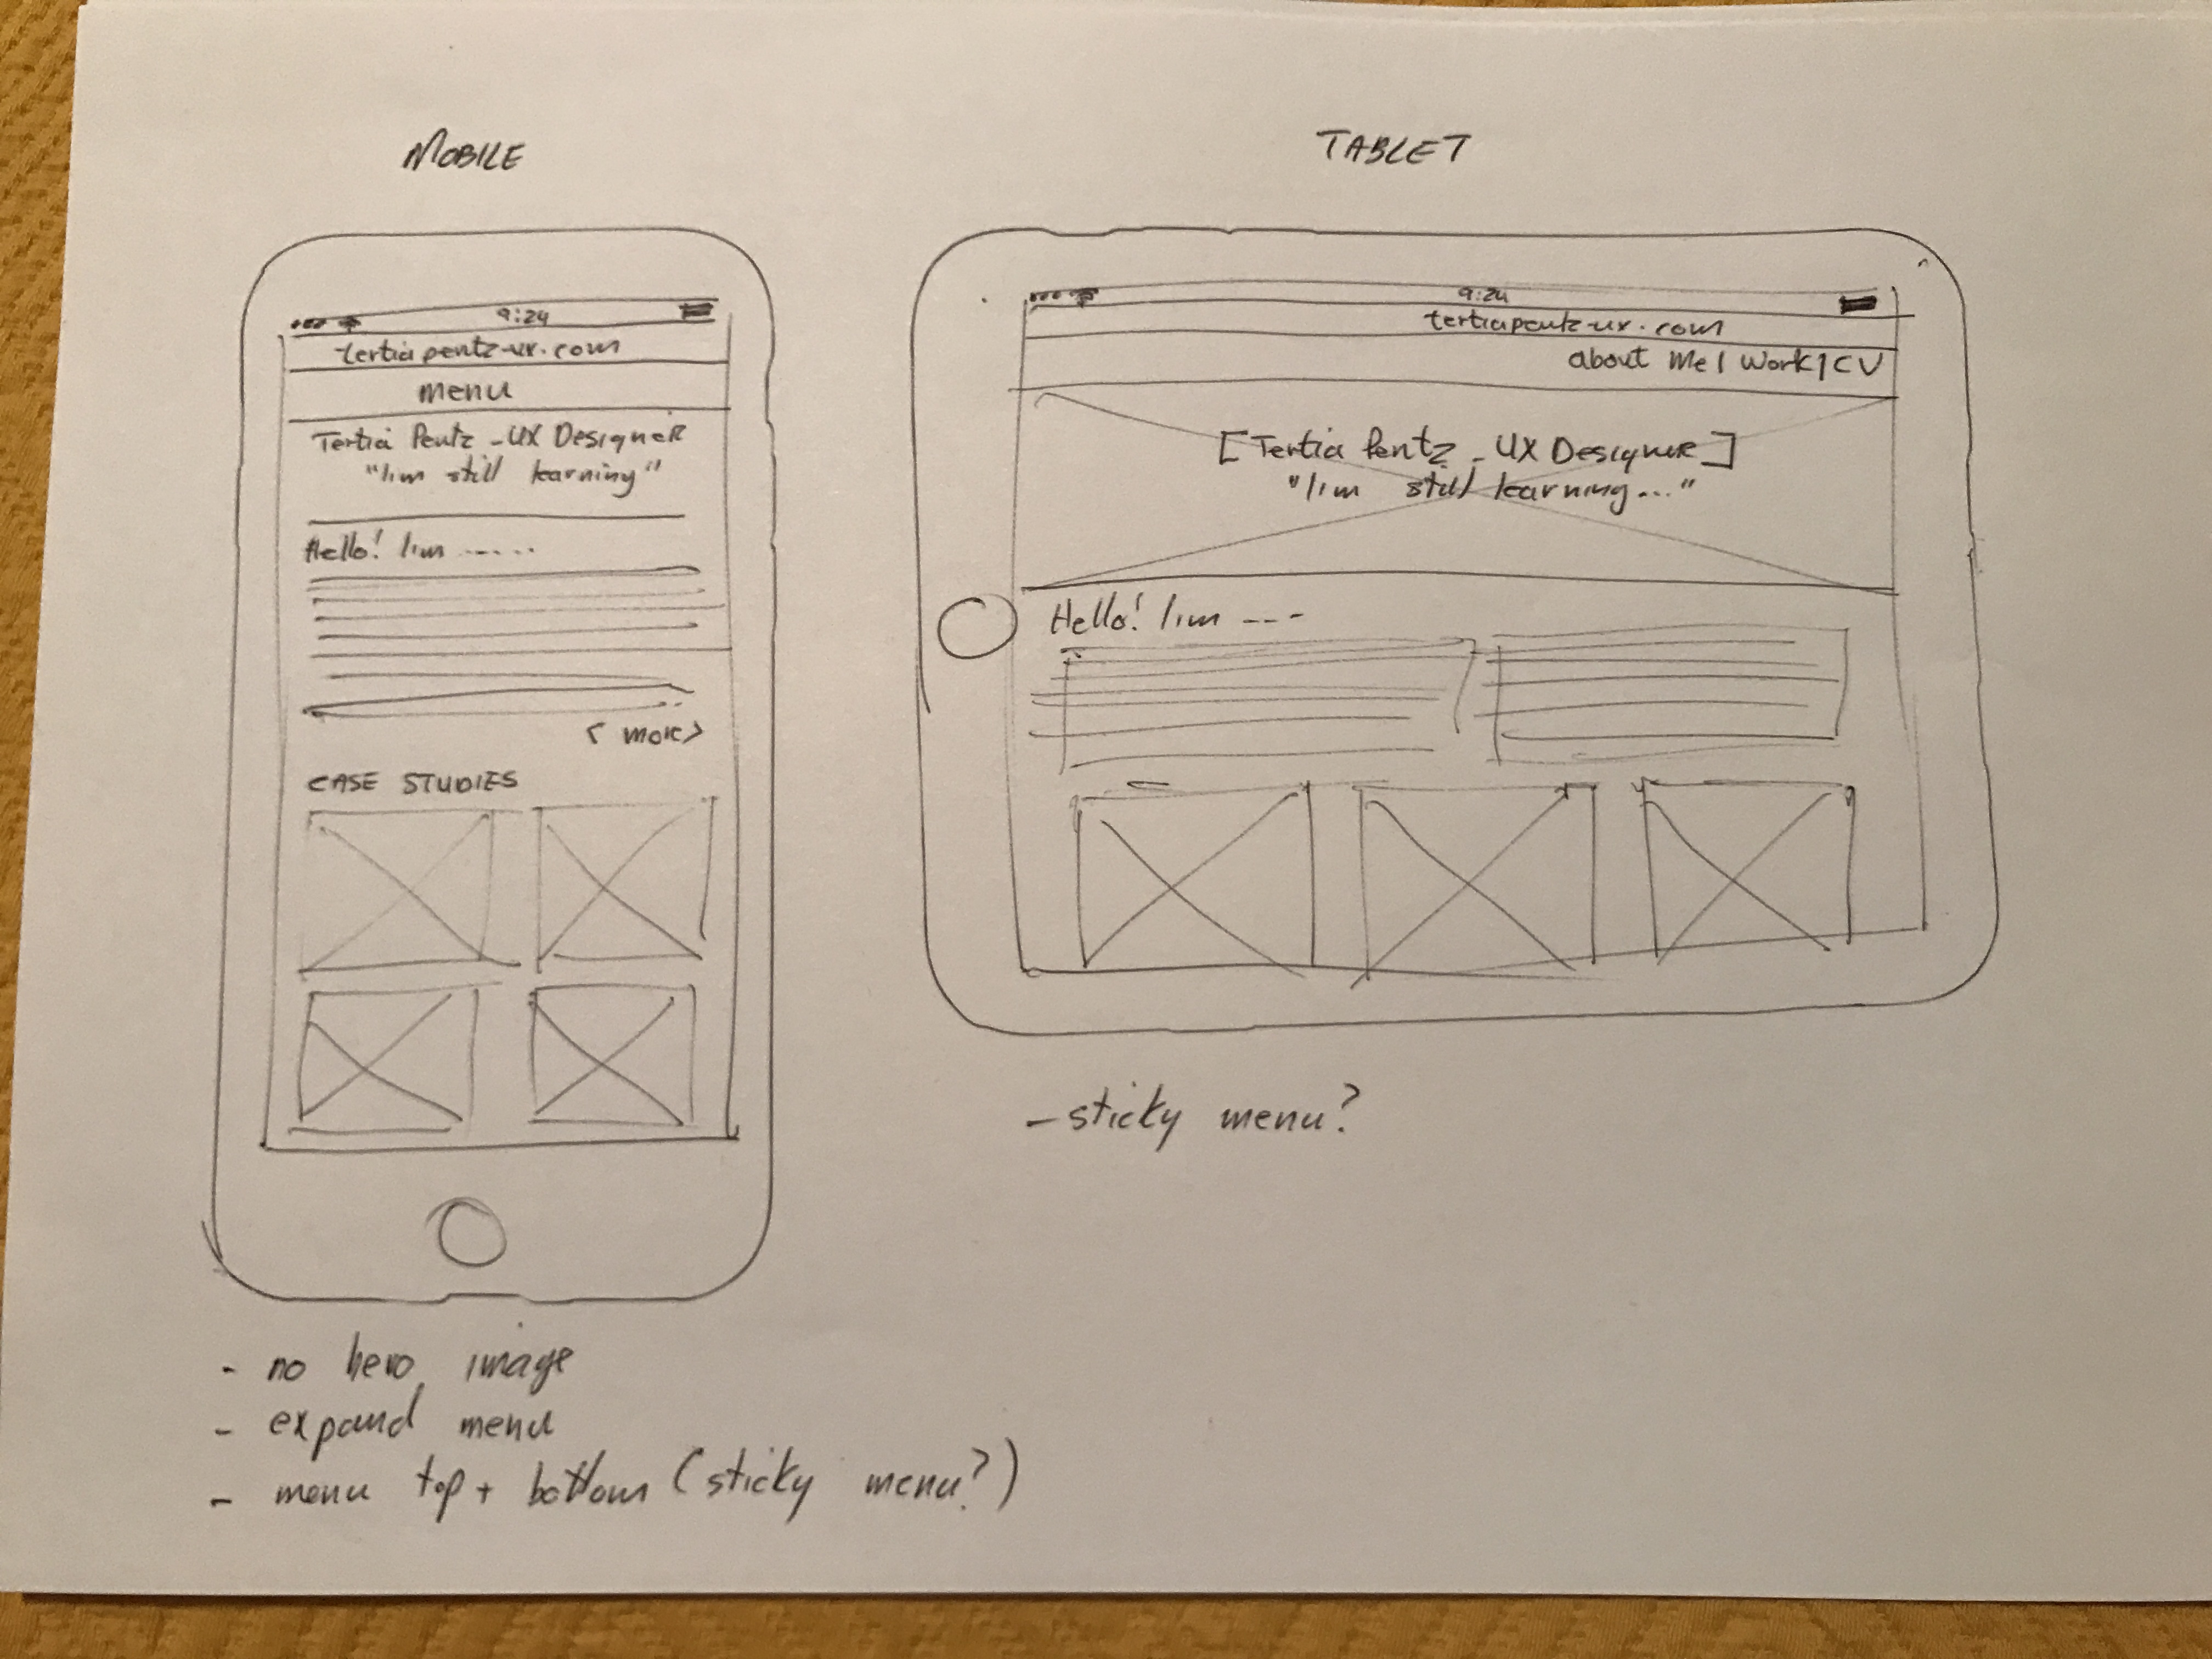 MOBILE
9:24
tertiapentz-ux.com
menu
Tertia Pentz - UX Designer
"I'm still learning"
Hello! I'm ......
< more>
CASE STUDIES
- no hero image
- expand menu
- menu top + bottom (sticky menu?)
TABLET
9:24
tertiapentz-ux.com
about Me | Work | CV
[Tertia Pentz - UX Designer]
"I'm still learning..."
Hello! I'm ---
- sticky menu?